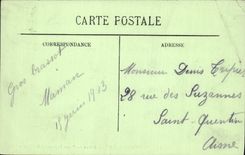 CARTE POSTALE
CORRESPONDANCE
ADRESSE
Gros
Maman
1913
Monsieur Denis
28 rue des Suzannes
Saint-Quentin
Aisne